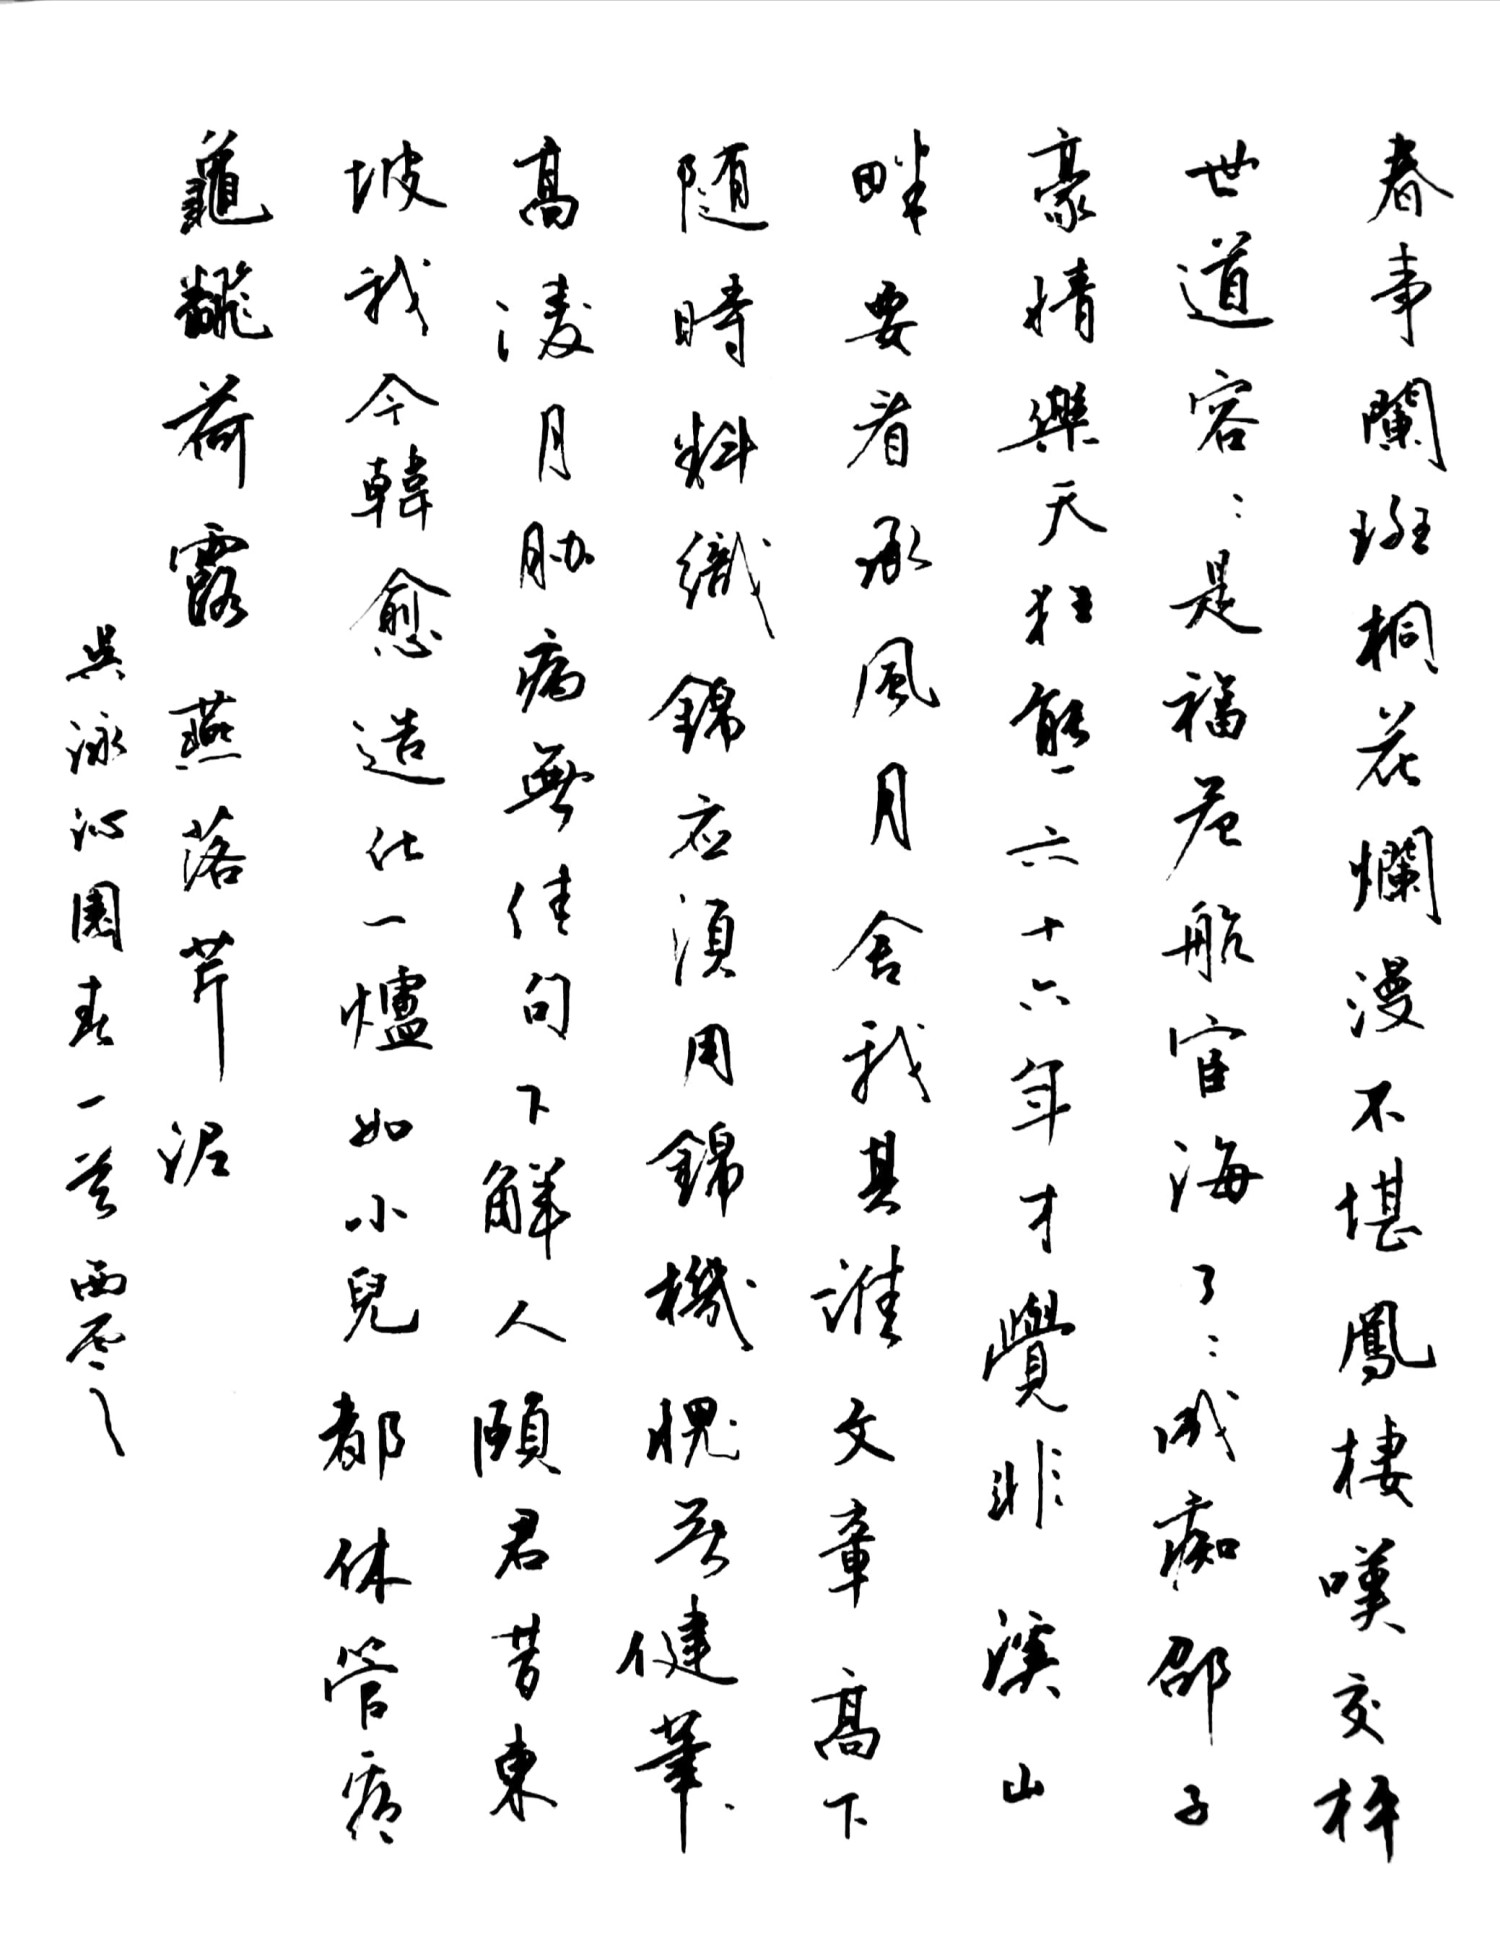 春事闌斑桐花爛漫不堪鳳棲嘆交枰
世道容：是福危航宦海了：成痴邵子
豪情樂天狂態六十六年才覺非溪山
畔要看承風月舍我其誰文章高下
随時料織錦应須用錦機愧无健筆
高淩月胁病無佳句下解人頤君昔東
坡我今韓愈造化一爐如小兒都休管看
龜翻荷露燕落芹泥
吳泳沁園春一首